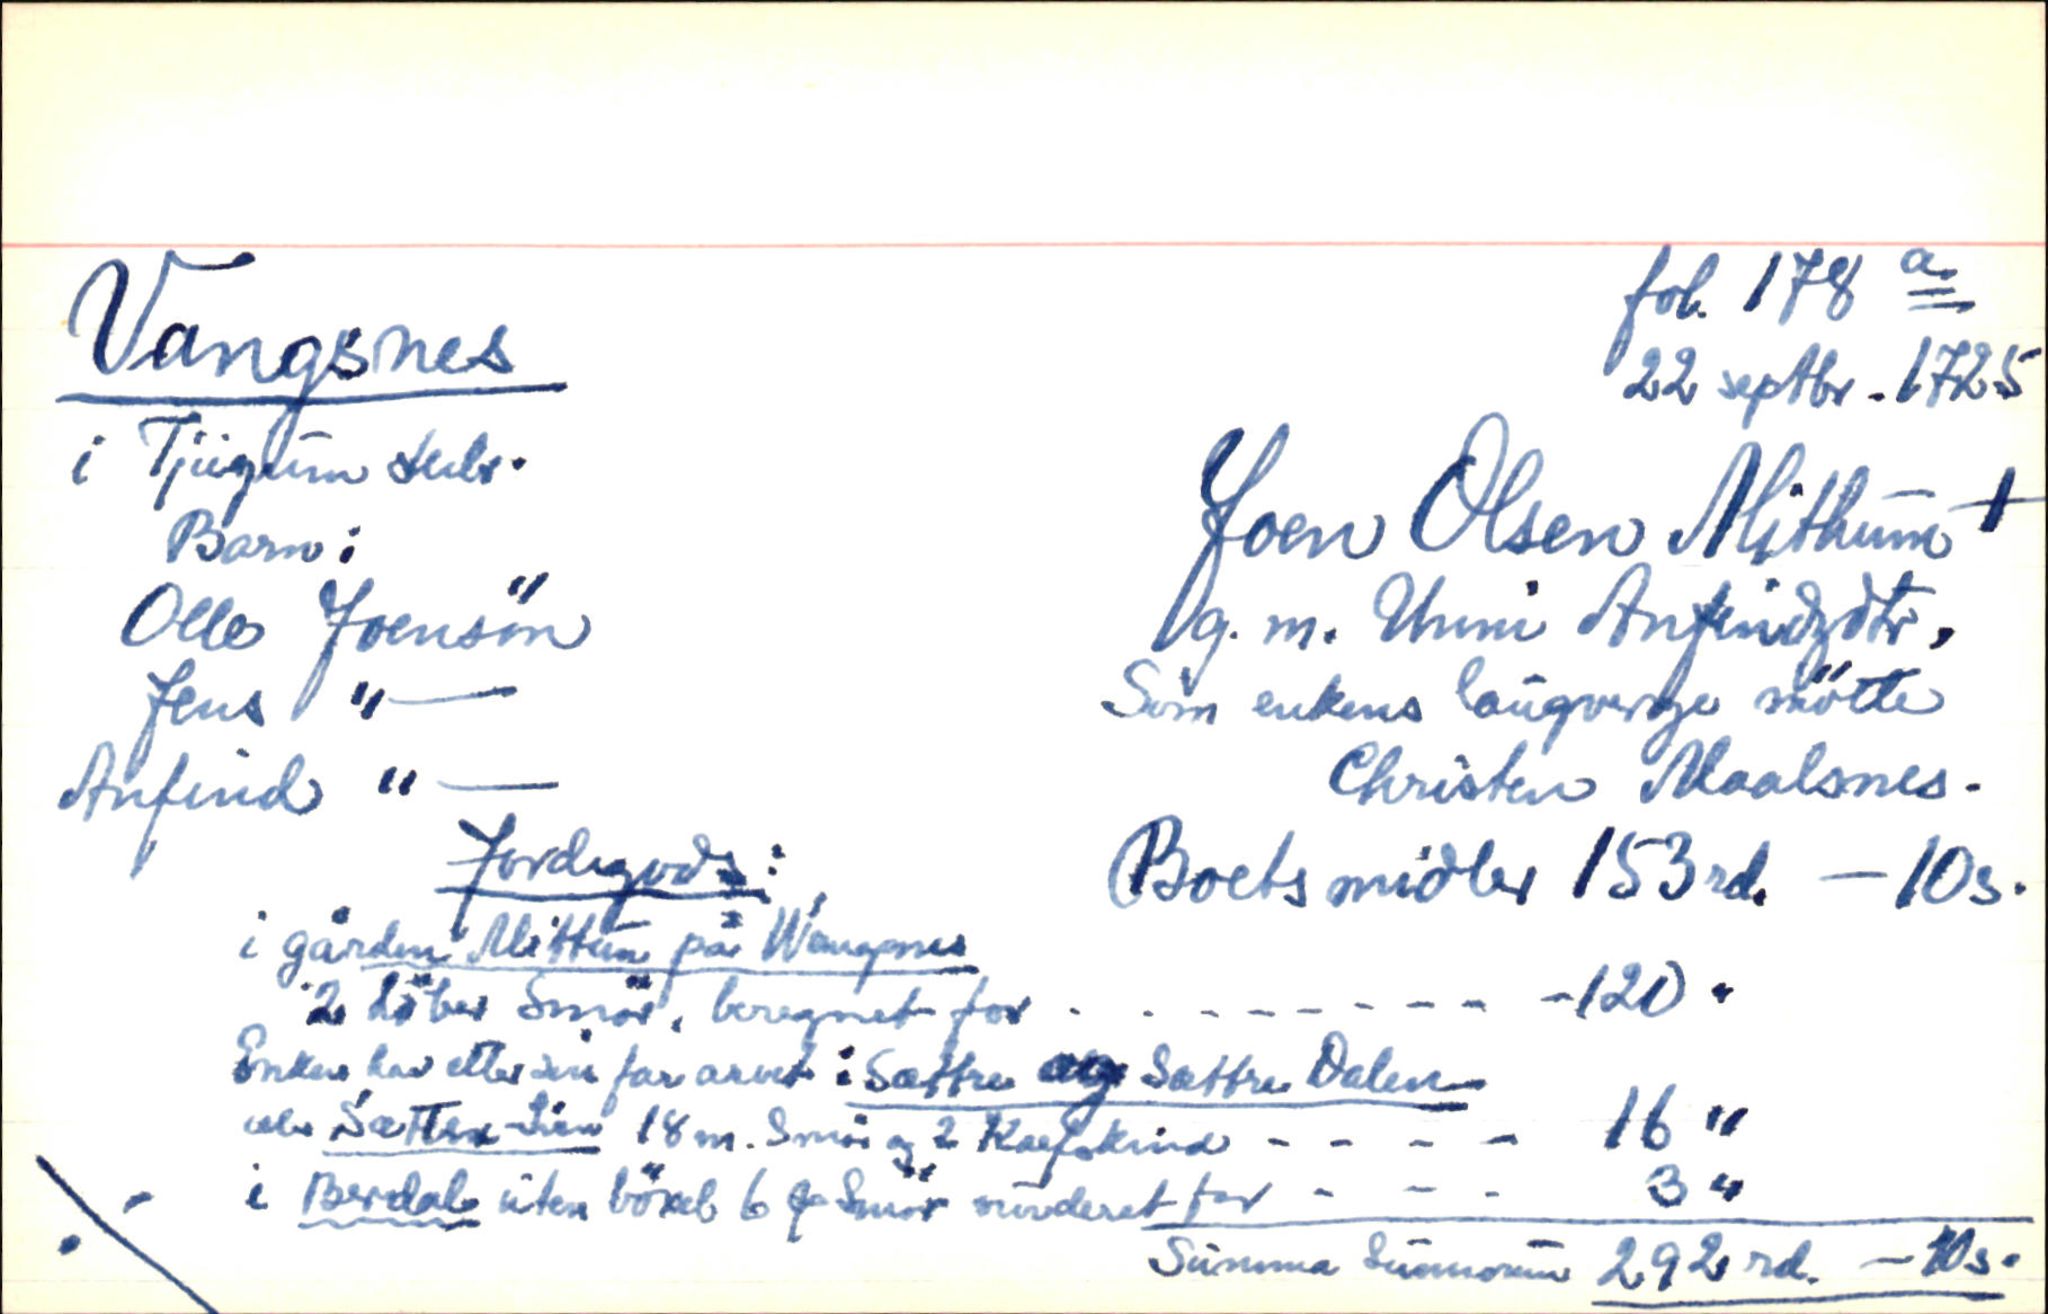 Vangsnes
i Tjügum skibr.
Barn:
Olle Joensön
Jens " —
Anfind " —
fol. 178 a.
22 septbr. 1725
Joen Olsen Mithum +
g. m. Unni Anfindzdtr,
Som enkens laugverge mötte
Christen Maalsnes.
Boets midler 153 rd. — 10 s.
Jordegods:
i gården Mittun på Wangsnes
2 Löber Smör, beregnet for - - - - - - - - - 120 "
Enken har etter sin far arvet i Sættre og Sættre Dalen
eller Sætten Lien 18 m. Smör og 2 Kalfskind - - - - 16 "
i Berdal uten böxel 6 Smör vurderet for - - - 3 "
Summa Summarum 292 rd. — 10 s.